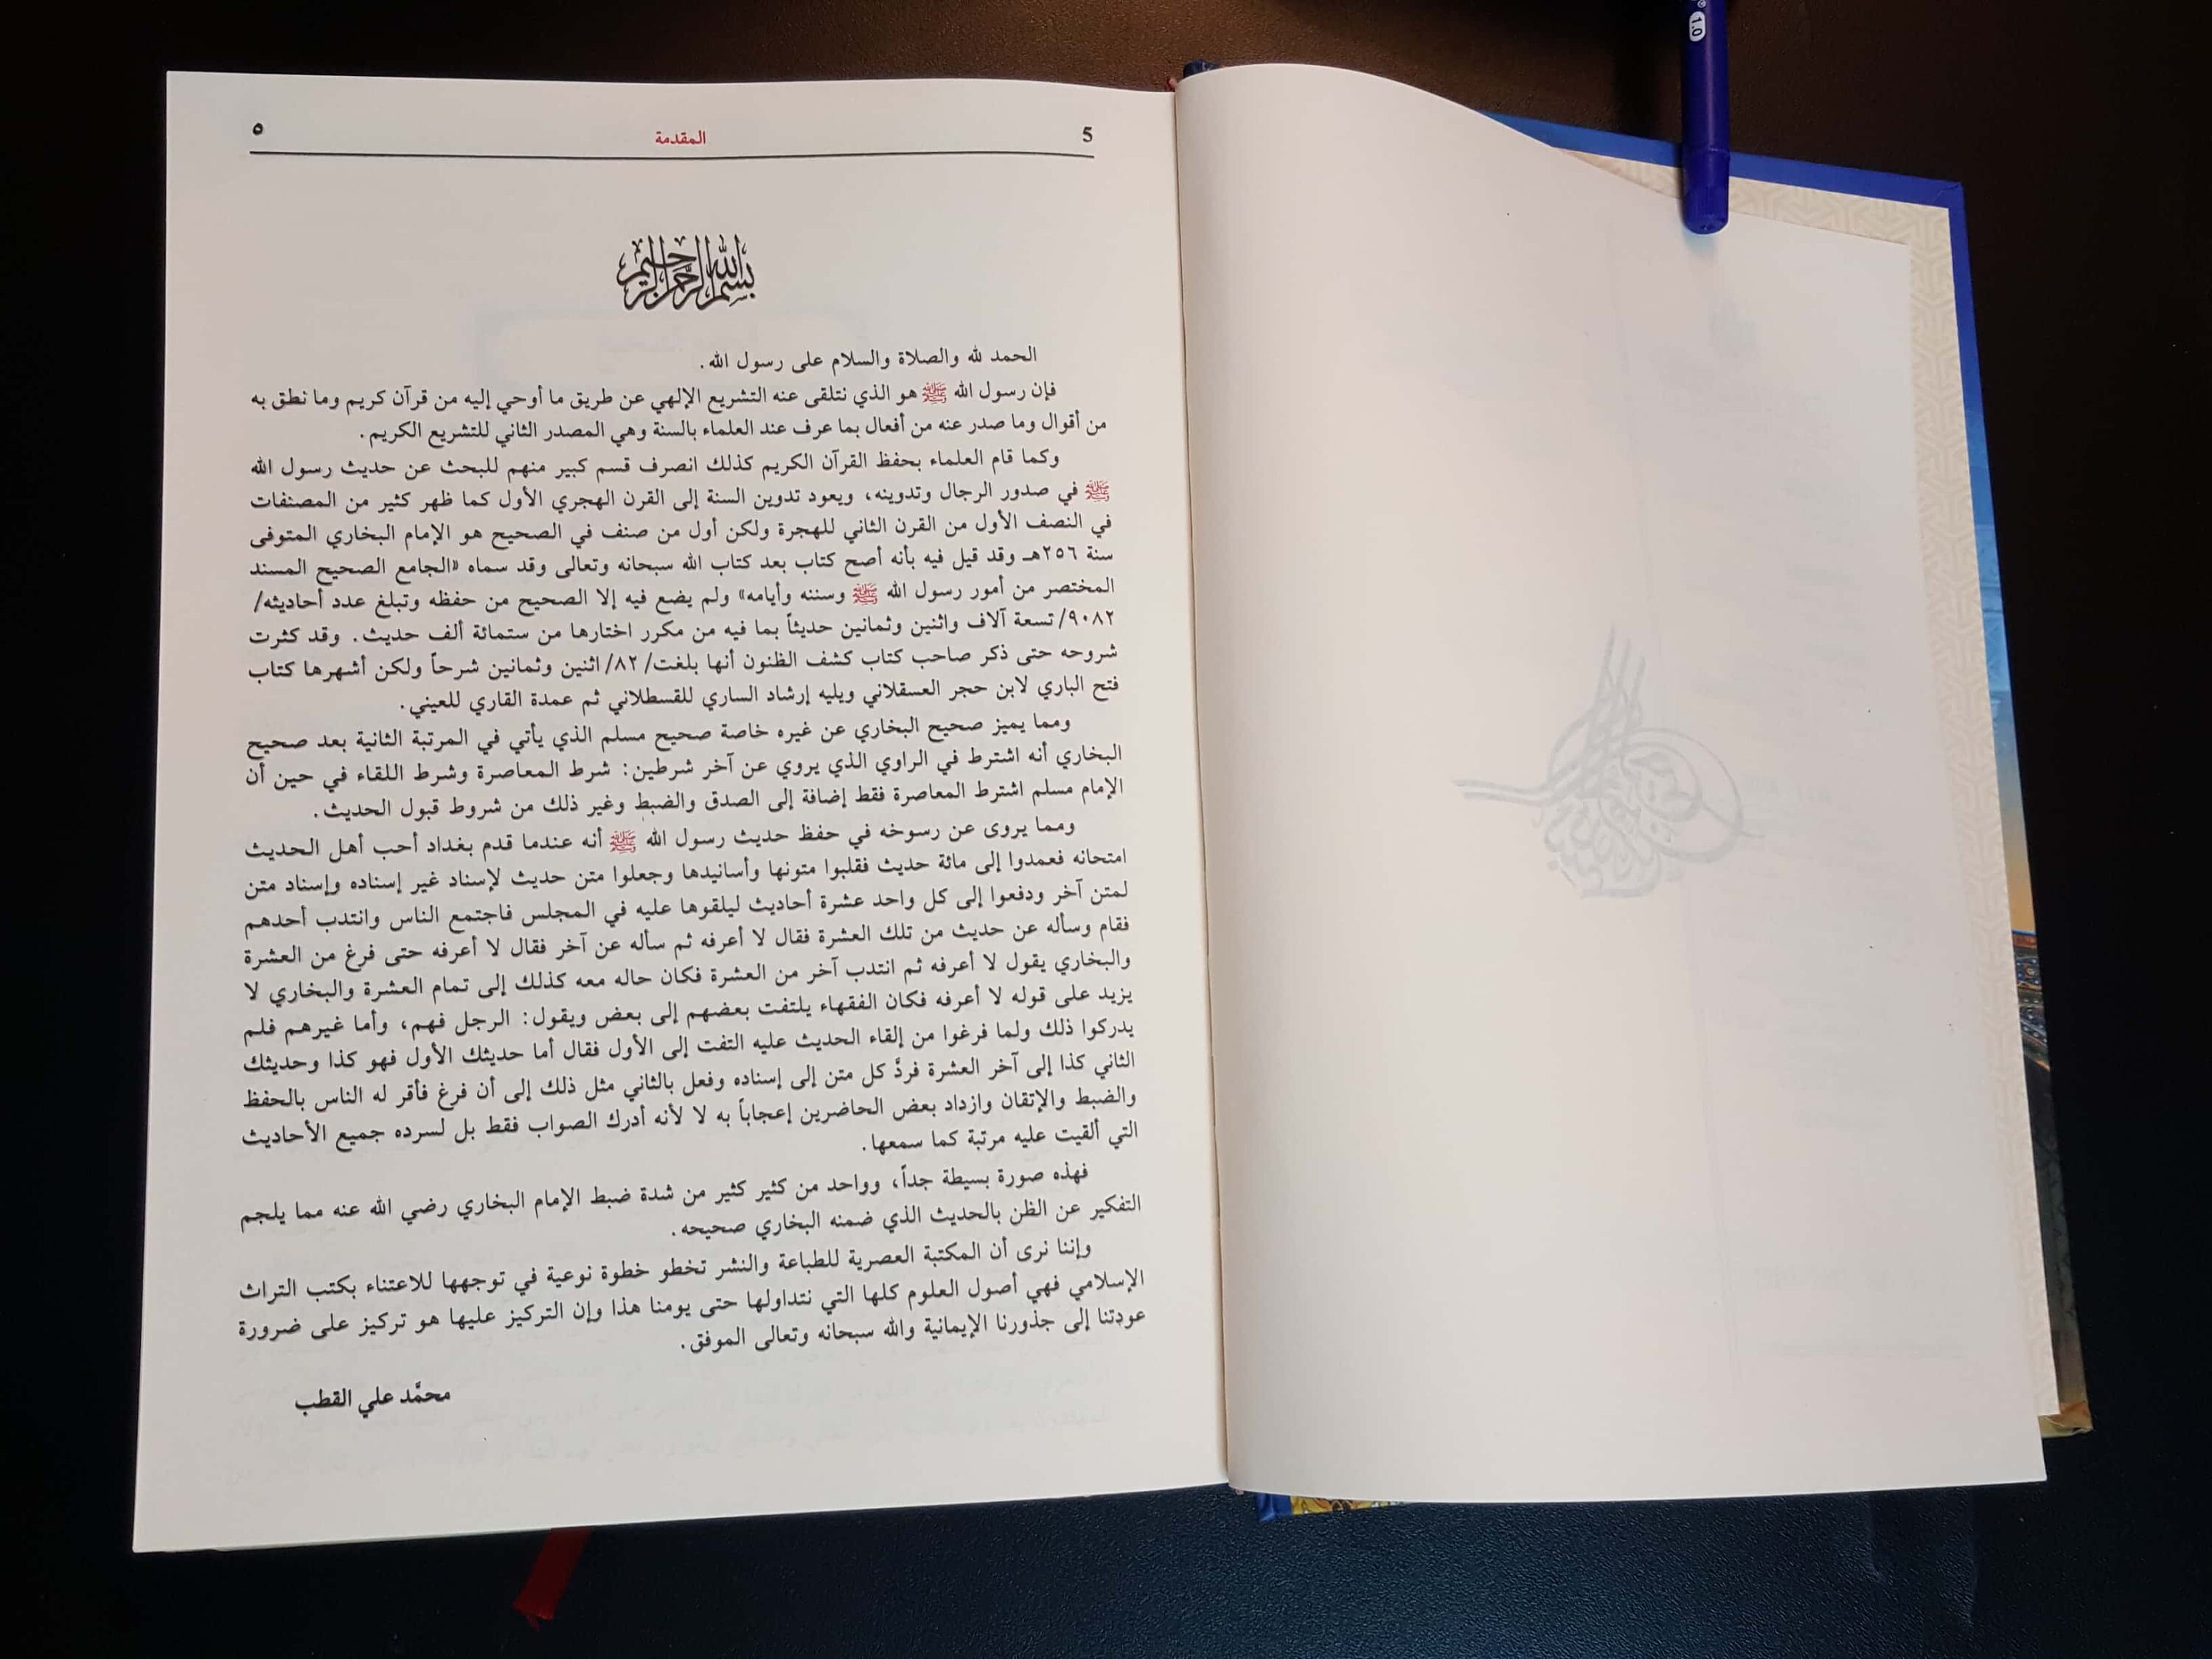 5 المقدمة ٥
بسم الله الرحمن الرحيم
الحمد لله والصلاة والسلام على رسول الله.
فإن رسول الله ﷺ هو الذي نتلقى عنه التشريع الإلهي عن طريق ما أوحي إليه من قرآن كريم وما نطق به
من أقوال وما صدر عنه من أفعال بما عرف عند العلماء بالسنة وهي المصدر الثاني للتشريع الكريم.
وكما قام العلماء بحفظ القرآن الكريم كذلك انصرف قسم كبير منهم للبحث عن حديث رسول الله
ﷺ في صدور الرجال وتدوينه، ويعود تدوين السنة إلى القرن الهجري الأول كما ظهر كثير من المصنفات
في النصف الأول من القرن الثاني للهجرة ولكن أول من صنف في الصحيح هو الإمام البخاري المتوفى
سنة ٢٥٦هـ وقد قيل فيه بأنه أصح كتاب بعد كتاب الله سبحانه وتعالى وقد سماه «الجامع الصحيح المسند
المختصر من أمور رسول الله ﷺ وسننه وأيامه» ولم يضع فيه إلا الصحيح من حفظه وتبلغ عدد أحاديثه/
٩٠٨٢/ تسعة آلاف واثنين وثمانين حديثاً بما فيه من مكرر اختارها من ستمائة ألف حديث. وقد كثرت
شروحه حتى ذكر صاحب كتاب كشف الظنون أنها بلغت/ ٨٢/ اثنين وثمانين شرحاً ولكن أشهرها كتاب
فتح الباري لابن حجر العسقلاني ويليه إرشاد الساري للقسطلاني ثم عمدة القاري للعيني.
ومما يميز صحيح البخاري عن غيره خاصة صحيح مسلم الذي يأتي في المرتبة الثانية بعد صحيح
البخاري أنه اشترط في الراوي الذي يروي عن آخر شرطين: شرط المعاصرة وشرط اللقاء في حين أن
الإمام مسلم اشترط المعاصرة فقط إضافة إلى الصدق والضبط وغير ذلك من شروط قبول الحديث.
ومما يروى عن رسوخه في حفظ حديث رسول الله ﷺ أنه عندما قدم بغداد أحب أهل الحديث
امتحانه فعمدوا إلى مائة حديث فقلبوا متونها وأسانيدها وجعلوا متن حديث لإسناد غير إسناده وإسناد متن
لمتن آخر ودفعوا إلى كل واحد عشرة أحاديث ليلقوها عليه في المجلس فاجتمع الناس وانتدب أحدهم
فقام وسأله عن حديث من تلك العشرة فقال لا أعرفه ثم سأله عن آخر فقال لا أعرفه حتى فرغ من العشرة
والبخاري يقول لا أعرفه ثم انتدب آخر من العشرة فكان حاله معه كذلك إلى تمام العشرة والبخاري لا
يزيد على قوله لا أعرفه فكان الفقهاء يلتفت بعضهم إلى بعض ويقول: الرجل فهم، وأما غيرهم فلم
يدركوا ذلك ولما فرغوا من إلقاء الحديث عليه التفت إلى الأول فقال أما حديثك الأول فهو كذا وحديثك
الثاني كذا إلى آخر العشرة فردَّ كل متن إلى إسناده وفعل بالثاني مثل ذلك إلى أن فرغ فأقر له الناس بالحفظ
والضبط والإتقان وازداد بعض الحاضرين إعجاباً به لا لأنه أدرك الصواب فقط بل لسرده جميع الأحاديث
التي ألقيت عليه مرتبة كما سمعها.
فهذه صورة بسيطة جداً، وواحد من كثير كثير من شدة ضبط الإمام البخاري رضي الله عنه مما يلجم
التفكير عن الظن بالحديث الذي ضمنه البخاري صحيحه.
وإننا نرى أن المكتبة العصرية للطباعة والنشر تخطو خطوة نوعية في توجهها للاعتناء بكتب التراث
الإسلامي فهي أصول العلوم كلها التي نتداولها حتى يومنا هذا وإن التركيز عليها هو تركيز على ضرورة
عودتنا إلى جذورنا الإيمانية والله سبحانه وتعالى الموفق.
محمَّد علي القطب
1.0